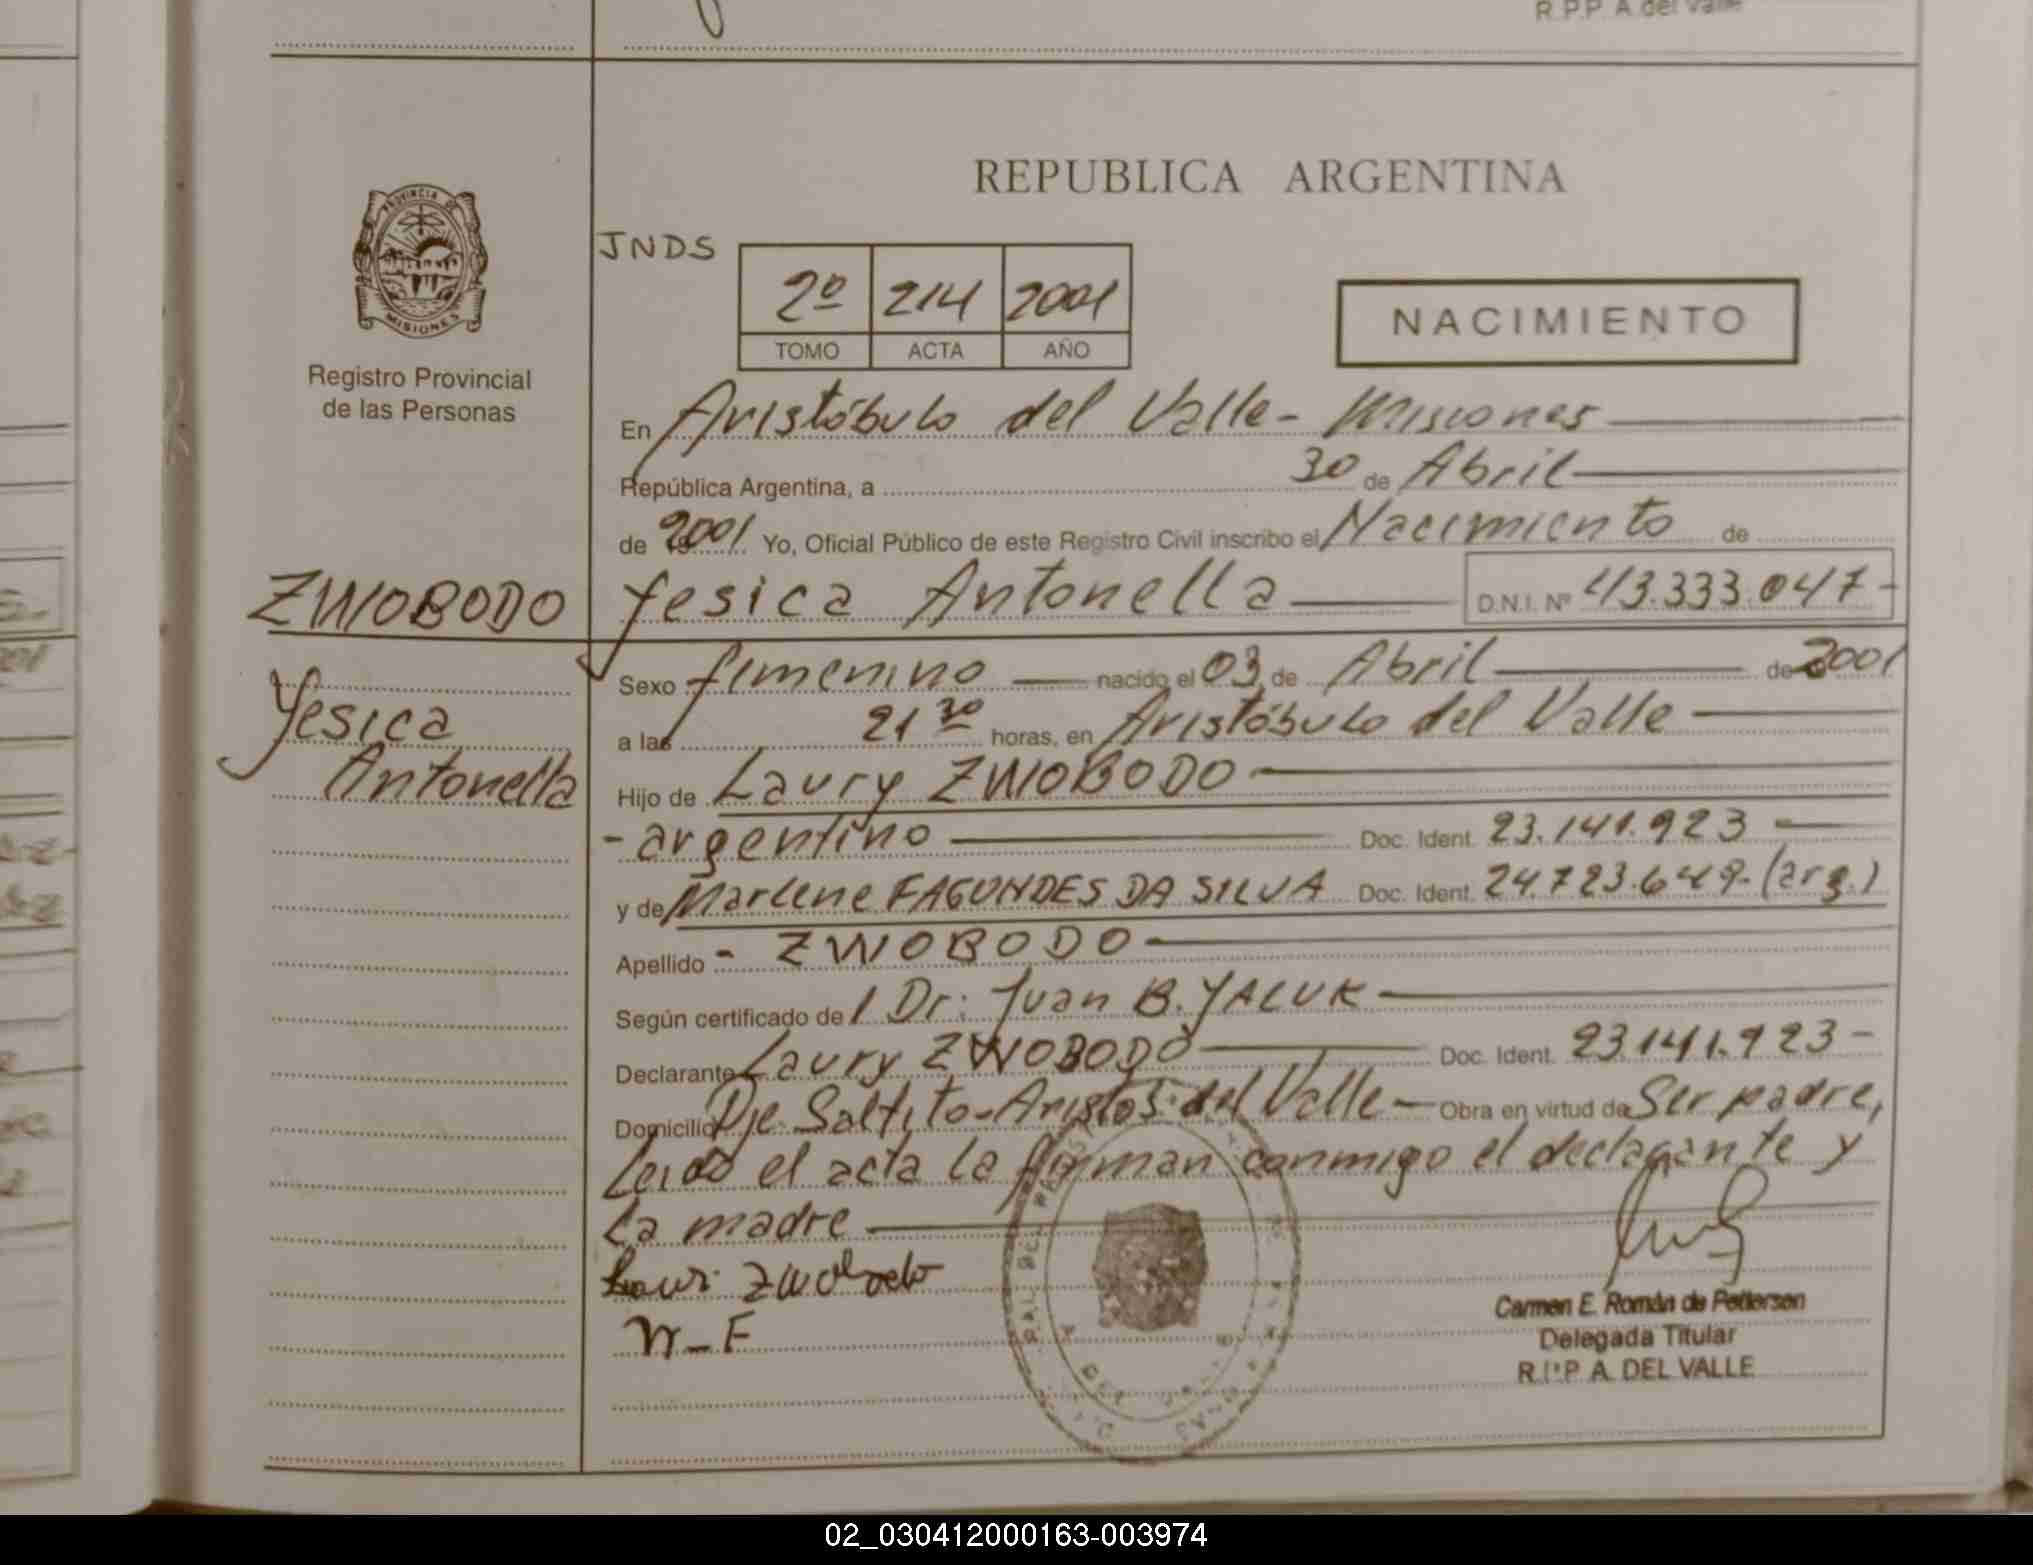 R.P.P. A. del Valle
REPUBLICA ARGENTINA
PROVINCIA DE
MISIONES
Registro Provincial
de las Personas
JNDS
2º 214 2001
TOMO ACTA AÑO
NACIMIENTO
En Aristóbulo del Valle - Misiones
República Argentina, a 30 de Abril
de 2001 Yo, Oficial Público de este Registro Civil inscribo el Nacimiento de
ZWOBODO
Yesica Antonella D.N.I. Nº 43.333.047-
Yesica
Antonella
Sexo femenino nacido el 03 de Abril de 2001
a las 21 30 horas, en Aristóbulo del Valle
Hijo de Laury ZWOBODO
- argentino Doc. Ident. 23.141.923
y de Marlene FAGUNDES DA SILVA Doc. Ident. 24.723.649- (arg.)
Apellido - ZWOBODO
Según certificado de / Dr: Juan B. YALUK
Declarante Laury ZWOBODO Doc. Ident. 23.141.923-
Domicilio Pje. Saltito - Aristób. del Valle - Obra en virtud de Ser padre,
Leido el acta la firman conmigo el declarante y
la madre
Zwobodo
M-F
Carmen E. Román de Pettersen
Delegada Titular
R.P.P. A. DEL VALLE
02_030412000163-003974